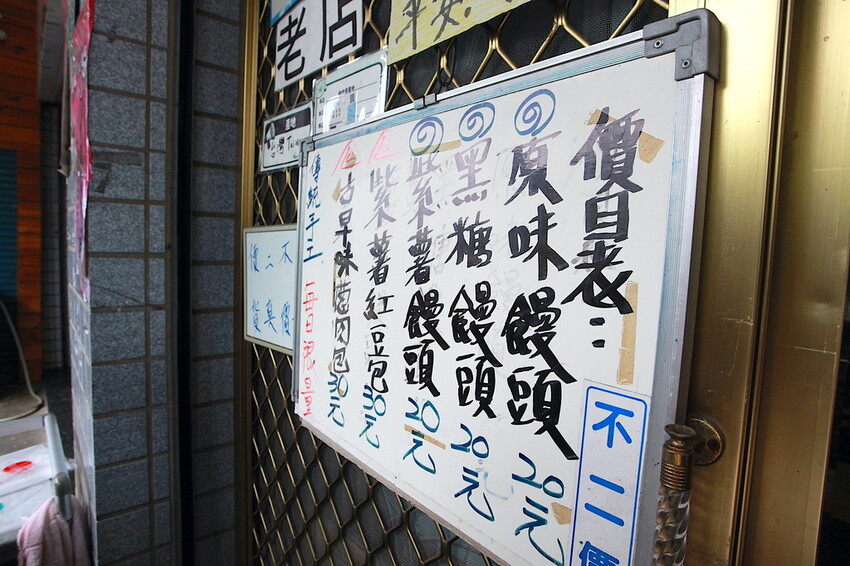 價目表:
原味饅頭 20元
黑糖饅頭 20元
紫薯饅頭 20元
紫薯紅豆包 30元
古早味菌肉包 30元
傳統手工 每日限量
不二價
不二價
老店
平安